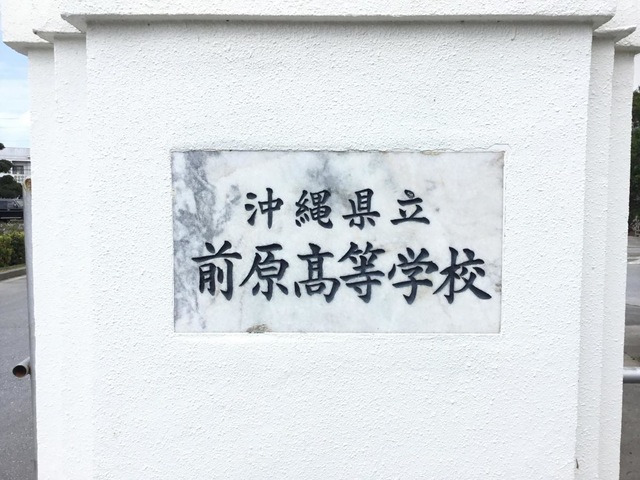 沖縄県立
前原髙等学校